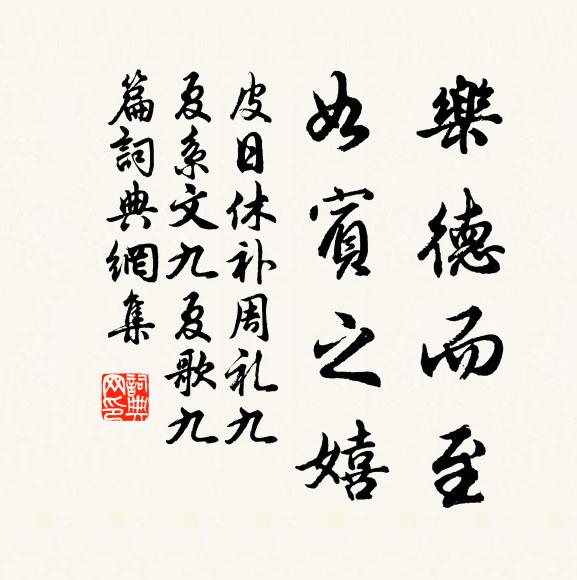 樂德而至
如賓之嬉
皮日休补周礼九
夏系文九夏歌九
篇詞典網集
詞典
网印